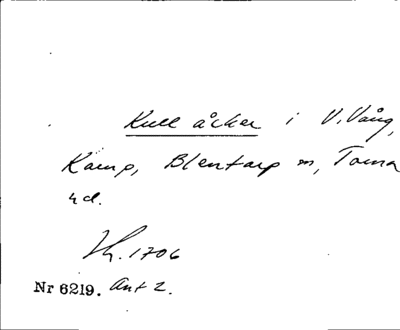 Kull åcker i V. Vång,
Kamp, Blentarp sn, Torna
hd.
Jb. 1706
Nr 6219. Ant 2.